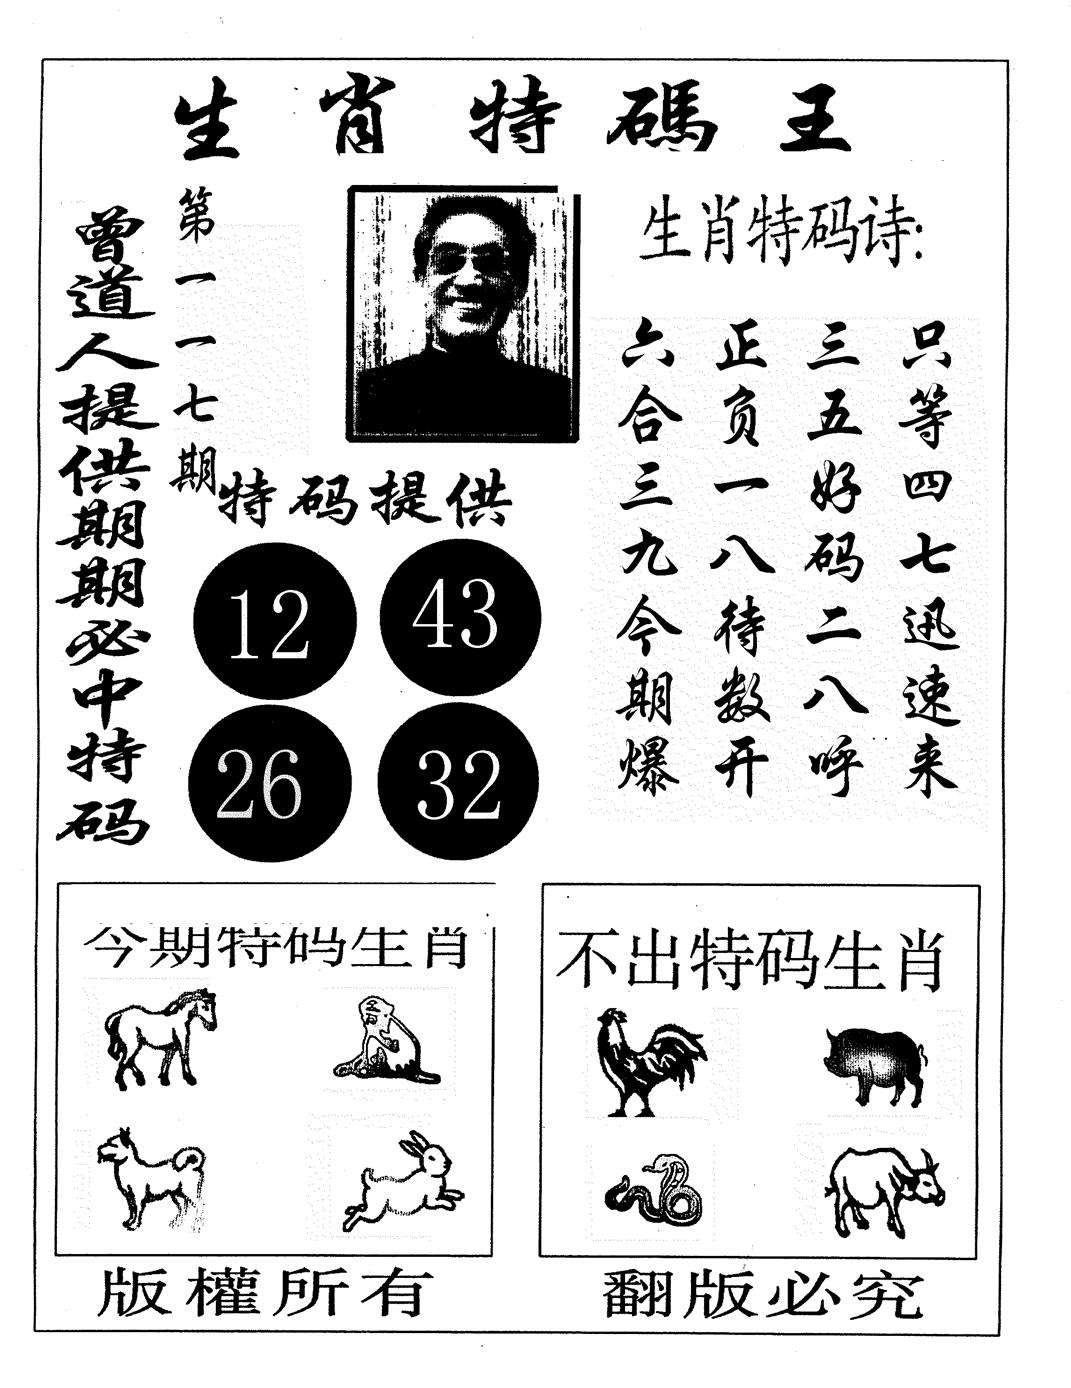 生肖特碼王
曾道人提供期期必中特码
第一一七期
特码提供
12 43
26 32
生肖特码诗:
只等四七迅速来
三五好码二八呼
正负一八待数开
六合三九今期爆
今期特码生肖
不出特码生肖
版權所有
翻版必究